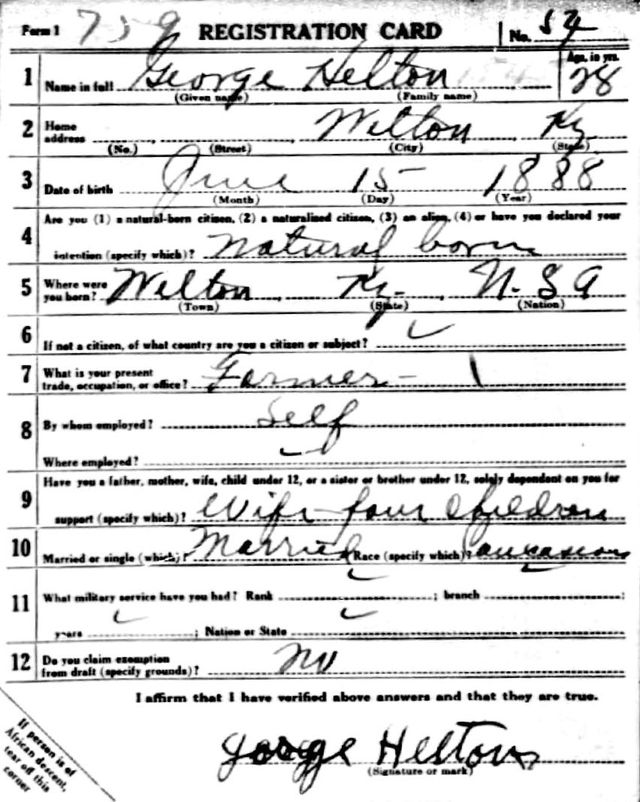 Form 1 759 REGISTRATION CARD No. 54
1 Name in full George Helton Age, in yrs. 28
(Given name) (Family name)
2 Home address Welton Ky.
(No.) (Street) (City) (State)
3 Date of birth June 15 1888
(Month) (Day) (Year)
Are you (1) a natural-born citizen, (2) a naturalized citizen, (3) an alien, (4) or have you declared your
4 intention (specify which)? Natural born
5 Where were you born? Welton Ky. U.S.A
(Town) (State) (Nation)
6 If not a citizen, of what country are you a citizen or subject?
7 What is your present trade, occupation, or office? Farmer - 1
8 By whom employed? Self
Where employed?
Have you a father, mother, wife, child under 12, or a sister or brother under 12, solely dependent on you for
9 support (specify which)? Wife four children
10 Married or single (which)? Married Race (specify which)? Caucasian
11 What military service have you had? Rank ; branch ;
years ; Nation or State
12 Do you claim exemption from draft (specify grounds)? No
I affirm that I have verified above answers and that they are true.
George Helton
(Signature or mark)
If person is of
African descent,
tear off this
corner